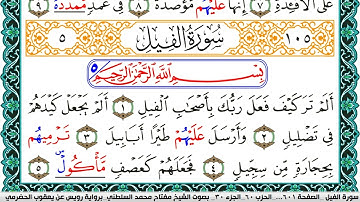 عَلَى الْأَفْئِدَةِ ٧ إِنَّهَا عَلَيْهُم مُّوصَدَةٌ ٨ فِي عَمَدٍ مُّمَدَّدَةٍ ٩
٥ سُورَةُ الْفِيلِ ١٠٥
بِسْمِ اللَّهِ الرَّحْمَٰنِ الرَّحِيمِ
أَلَمْ تَرَ كَيْفَ فَعَلَ رَبُّكَ بِأَصْحَابِ الْفِيلِ ١ أَلَمْ يَجْعَلْ كَيْدَهُمْ
فِي تَضْلِيلٍ ٢ وَأَرْسَلَ عَلَيْهُمْ طَيْرًا أَبَابِيلَ ٣ تَرْمِيهُم
بِحِجَارَةٍ مِّن سِجِّيلٍ ٤ فَجَعَلَهُمْ كَعَصْفٍ مَّأْكُولٍ ٥
سورة الفيل الصفحة ٦٠١ الحزب ٦٠ الجزء ٣٠ بصوت الشيخ مفتاح محمد السلطني برواية رويس عن يعقوب الحضرمي